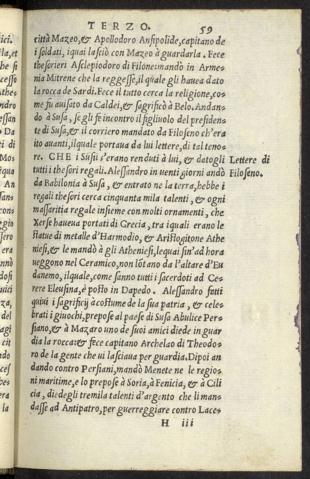 TERZO. 59
città Mazeo, & Apollodoro Anfipolide, capitano de
i soldati, i quai lasciò con Mazeo à guardarla. Fece
thesorieri Asclepiodoro di Filone: mandò in Arme=
nia Mitrene che la reggesse, il quale gli hauea dato
la rocca de Sardi. Fece il tutto cerca la religione, co=
me fu auisato da Caldei, & sagrificò à Belo. Andan=
dò à Susa, se gli fe incontro il figliuolo del presiden=
te di Susa, & il corriero mandato da Filoseno ch'era
ito auanti, il quale portaua da lui lettere, di tal teno=
re. CHE i Susii s'erano renduti à lui, & datogli
Lettere di
Filoseno.
tutti i thesori regali. Alessandro in uenti giorni andò
da Babilonia à Susa, & entrato ne la terra, hebbe i
regali thesori cerca cinquanta mila talenti, & ogni
massaritia regale insieme con molti ornamenti, che
Xerse haueua portati di Grecia, tra i quali erano le
statue di metalle d'Harmodio, & Aristogitone Athe
niesi, & le mandò à gli Atheniesi, le quai fin'ad hora
ueggono nel Ceramico, non lōtano da l'altare d'Eu
danemo, il quale, come sanno tutti i sacerdoti ad Ce=
rere Eleusina, è posto in Dapedo. Alessandro fatti
quiui i sagrificij à costume de la sua patria, & cele=
brati i giuochi, prepose al paese di Susa Abulice Per=
siano, & à Mazaro uno de suoi amici diede in guar
dia la rocca: & fece capitano Archelao di Theodo=
ro de la gente che ui lasciaua per guardia. Dipoi an
dando contro Persiani, mandò Menete ne le regio=
ni maritime, e lo prepose à Soria, à Fenicia, & à Cili
cia, diedegli tremila talenti d'argento che li man=
dasse ad Antipatro, per guerreggiare contro Laces
H iii